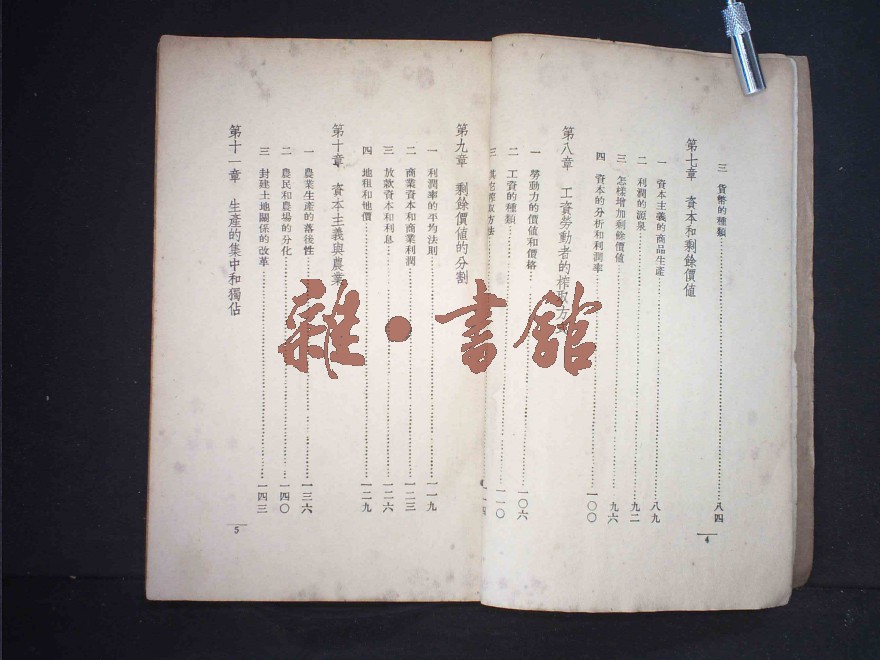 三 貨幣的種類……八四
第七章 資本和剩餘價値
一 資本主義的商品生產……八九
二 利潤的源泉……九二
三 怎樣增加剩餘價値……九六
四 資本的分析和利潤率……一〇〇
第八章 工資勞動者的榨取方
一 勞動力的價値和價格……一〇六
二 工資的種類……一一〇
三 其它榨取方法……一一四
4
第九章 剩餘價値的分割
一 利潤率的平均法則……一一九
二 商業資本和商業利潤……一二三
三 放款資本和利息……一二六
四 地租和地價……一二九
第十章 資本主義與農業
一 農業生產的落後性……一三六
二 農民和農場的分化……一四〇
三 封建土地關係的改革……一四三
第十一章 生產的集中和獨佔
5
雜·書館